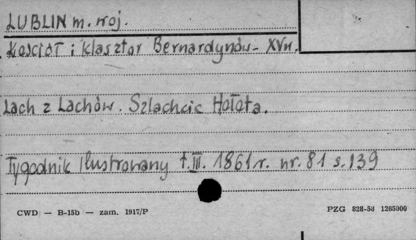 LUBLIN m. woj.
Kościół i klasztor Bernardynów - XVII w.
Lach z Lachów. Szlachcic Hołota.
Tygodnik Ilustrowany t. III. 1861 r. nr. 81 s. 139
CWD — B-15b — zam. 1917/P
PZG 828-58 1265000